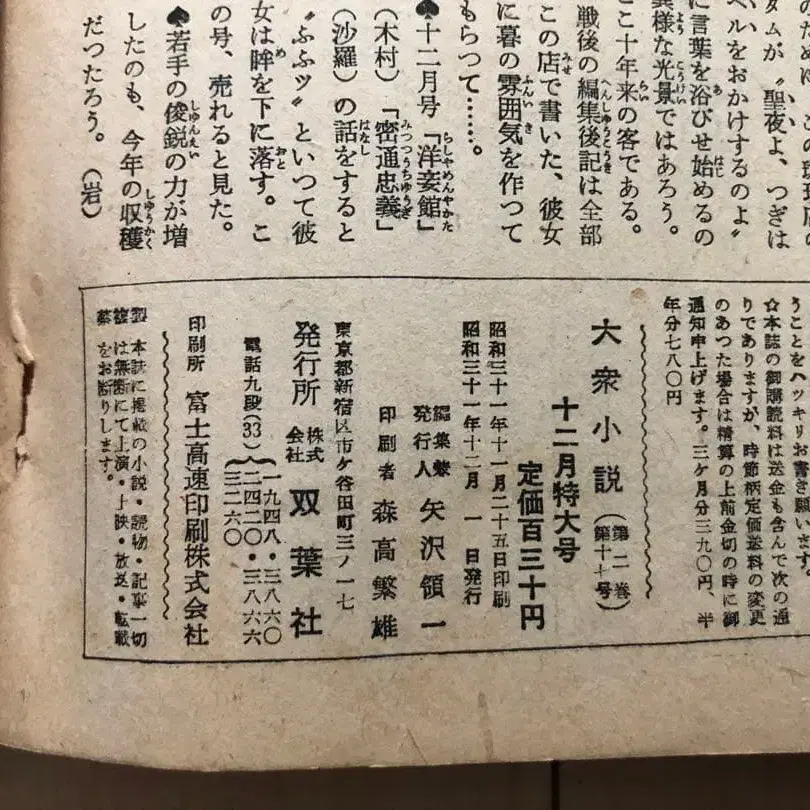 タムが〝聖夜よ、つぎは
ベルをおかけするのよ〟
に言葉を浴びせ始めるの
異様な光景ではあろう。
ここ十年来の客である。
戦後の編集後記は全部
この店で書いた、彼女
に暮の雰囲気を作つて
もらつて……。
♠十二月号「洋妾館」
(木村)「密通忠義」
(沙羅)の話をすると
〝ふふッ〟といつて彼
女は眸を下に落す。こ
の号、売れると見た。
♠若手の俊鋭の力が増
したのも、今年の収穫
だつたろう。 (岩)
うことをハッキリお書き願います。
☆本誌の御購読料は送金も含んで次の通
りでありますが、時節柄定価送料の変更
のあつた場合は精算の上前金切の時に御
通知申上げます。三ケ月分三九〇円、半
年分七八〇円
大衆小説(第二巻 第十七号)
十二月特大号
定価百三十円
昭和三十一年十一月二十五日印刷
昭和三十一年十二月 一日発行
編集兼発行人 矢沢領一
印刷者 森高繁雄
東京都新宿区市ケ谷田町三ノ一七
発行所 株式会社 双葉社
電話九段(33)一九四八・三八六〇
二四二〇・三八六六
三二六〇
印刷所 富士高速印刷株式会社
本誌に掲載の小説・読物・記事一切
は無断にて上演・上映・放送・転載
をお断りします。